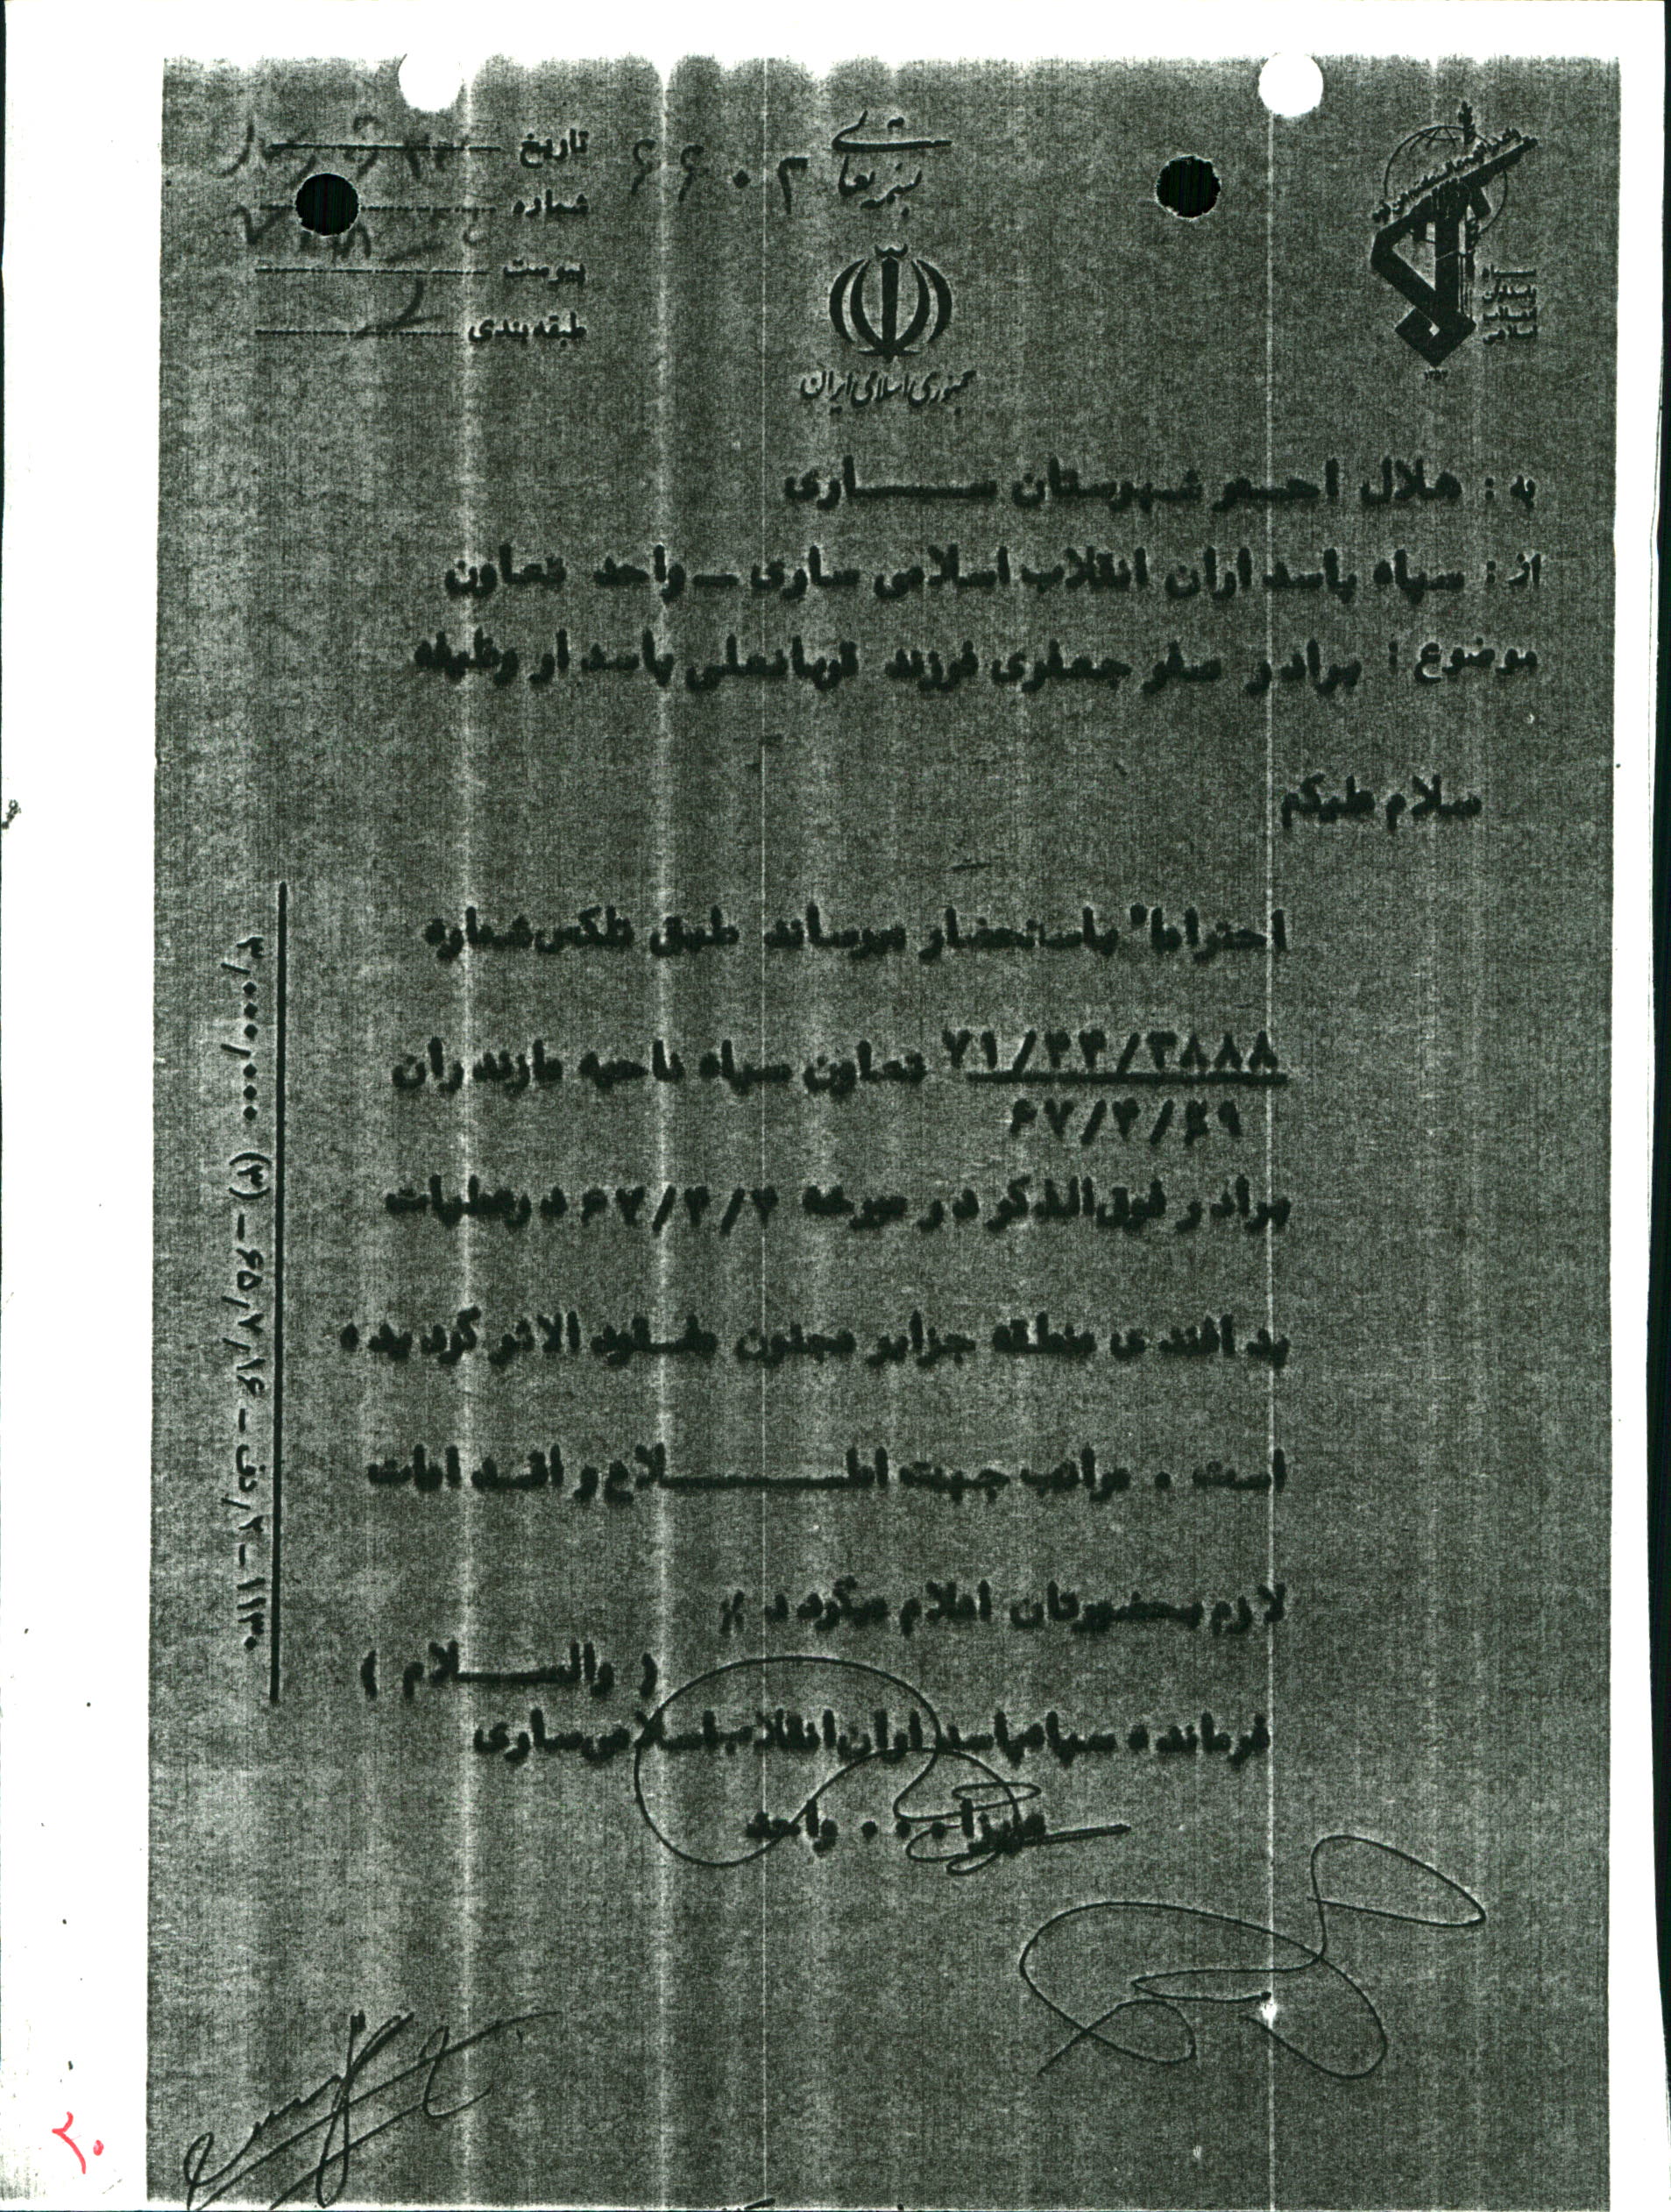 بسمه تعالی
۶۶۰۲
تاریخ
شماره
پیوست
طبقه‌بندی
جمهوری اسلامی ایران
سپاه پاسداران انقلاب اسلامی
به : هلال احمر شهرستان ســـاری
از : سپاه پاسد اران انقلاب اسلامی ساری ــ واحد تعاون
موضوع : براد ر صفر جعفری فرزند قربانعلی پاسد ار وظیفه
سلام علیکم
احتراما" باستحضار میرساند طبق تلکس شماره
۷۱/۴۴/۳۸۸۸ تعاون سپاه ناحیه مازند ران
۶۷/۴/۲۹
براد ر فوق الذکر د ر مورخه ۶۷/۴/۴ د رعملیات
پد افند ی منطقه جزایر مجنون مفــقود الاثر گرد ید ه
است . مراتب جهت اطـــــلاع و اقــد امات
لازم بحضورتان اعلام میگرد د //
( والســـلام )
فرماند ه سپاه پاسد اران انقلاب اسلامی ساری
علیرضا ... واحد
۳٫۰۰۰٫۰۰۰ (۳) ــ ۶۵٫۷٫۱۶ ــ ف٫۲ ــ ۱۱۳۰
۲۰